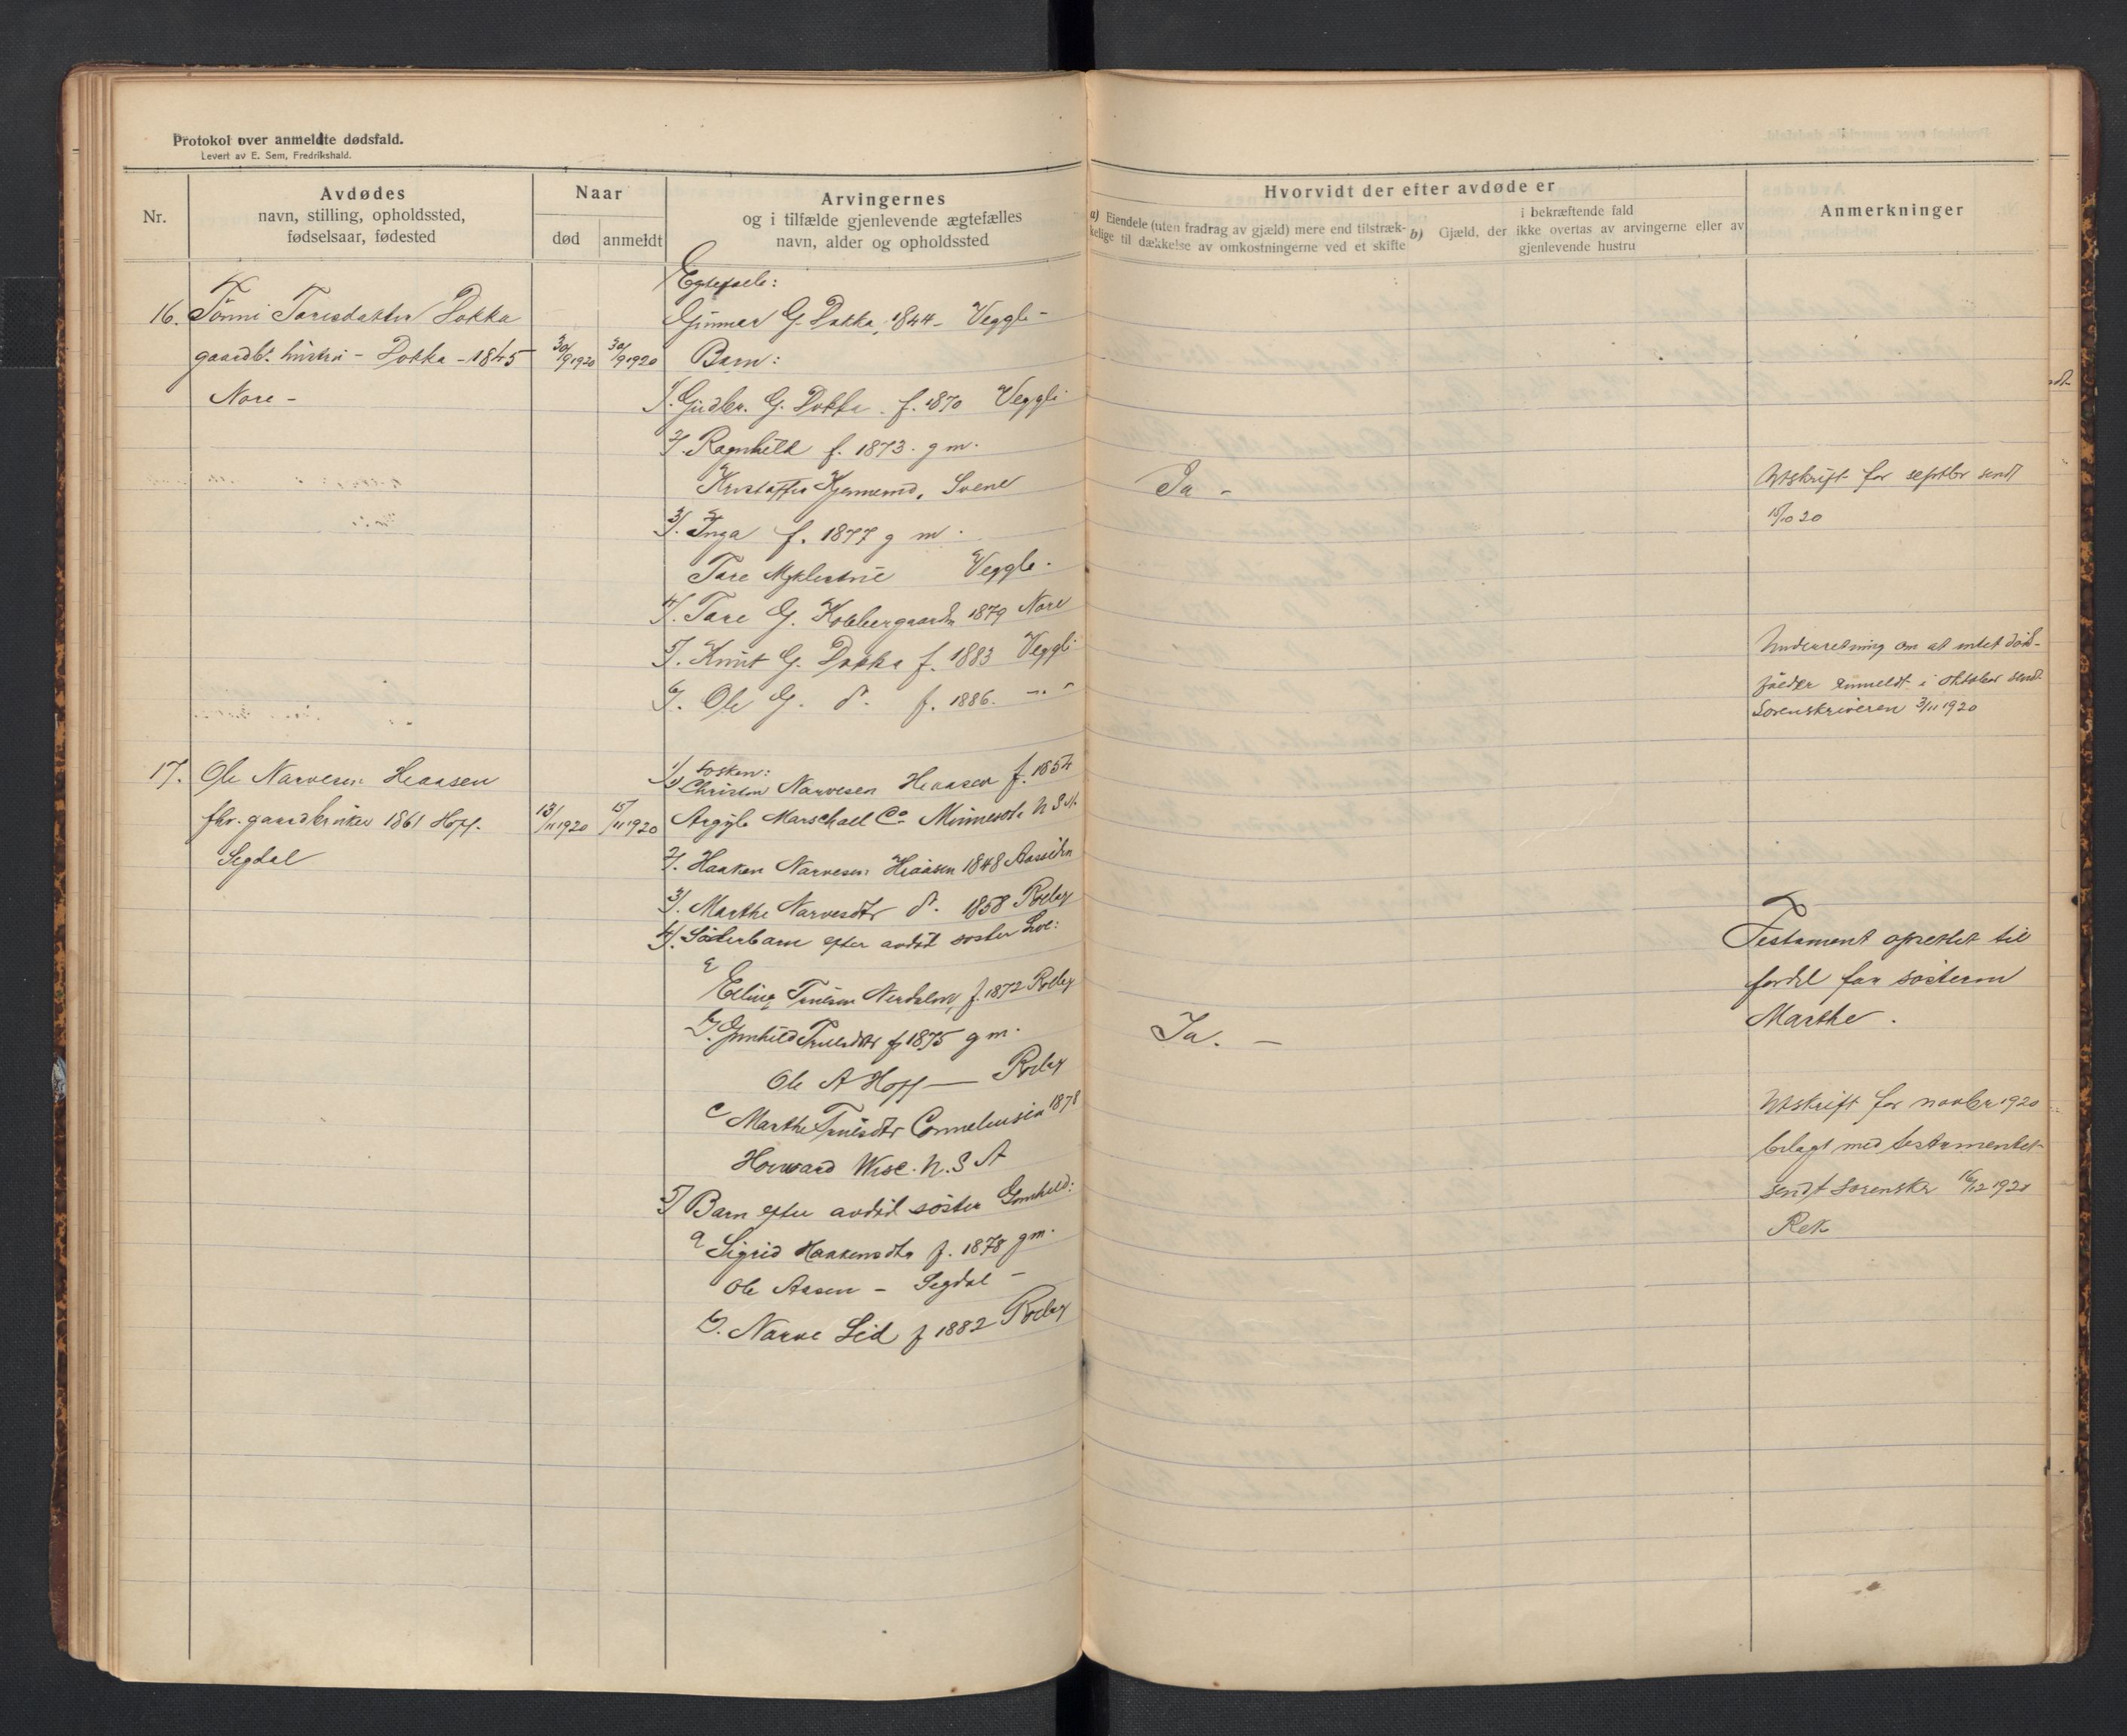 Protokol over anmeldte dødsfald.
Levert av E. Sem, Fredrikshald.
Nr.
Avdødes
navn, stilling, opholdssted,
fødselsaar, fødested
Naar
død
anmeldt
Arvingernes
og i tilfælde gjenlevende ægtefælles
navn, alder og opholdssted
Hvorvidt der efter avdøde er
a) Eiendele (uten fradrag av gjæld) mere end tilstræk-
kelige til dækkelse av omkostningerne ved et skifte
b) Gjæld, der i bekræftende fald
ikke overtas av arvingerne eller av
gjenlevende hustru
Anmerkninger
16. Tönni Toresdatter Dokka
gaardbr. hustru - Dokka - 1845
Nore -
30/9 1920
30/9 1920
Egtefæle:
Gunnar G. Dokka, 1844 - Veggli -
Barn:
1/. Gudbr. G. Dokka. f. 1870 Veggli
2/. Ragnhild f. 1873. g m.
Kristoffer Svene
3/. Inga f. 1877 g m.
Tore Veggli.
4/. Tore G. Kobbergaarden 1879 Nore
5/. Knut G. Dokka f. 1883 Veggli
6/. Ole G. do. f. 1886. - " -
Ja -
Utskrift for septbr sendt
15/10 20
Underretning om at intet döds-
falder anmeldt i oktober sendt
Sorenskriveren 3/11 1920
17. Ole Narvesen Heaasen
fhv. gaardbruker 1861 Hoff.
Sigdal
13/11 1920
15/11 1920
Sösken:
1/. Christen Narvesen Heaasen f. 1854
Argyle Marschall Co. Minnesota U S A.
2/. Haaken Narvesen Heaasen 1848 Aassiden
3/. Marthe Narvesdtr do. 1858 Rolley
4/. Sösterbarn efter avdöd söster
a Elling Trulsen f. 1872 Rolley
b. Gunhild Trulsdtr f 1875 g m.
Ole A Hoff — Rolley
c Marthe Trulsdtr Corneliusen 1878
Horward Wisc. U. S A
5/ Barn efter avdöd söster Gunhild:
a Sigrid Haakensdtr f. 1878 gm.
Ole Aasen - Sigdal -
b. Narve Lid f 1882 Rolley
Ja. -
Testament oprettet til
fordel for sösteren
Marthe.
Utskrift for novbr 1920
bilagt med testamentet
sendt Sorenskr 16/12 1920
Rek